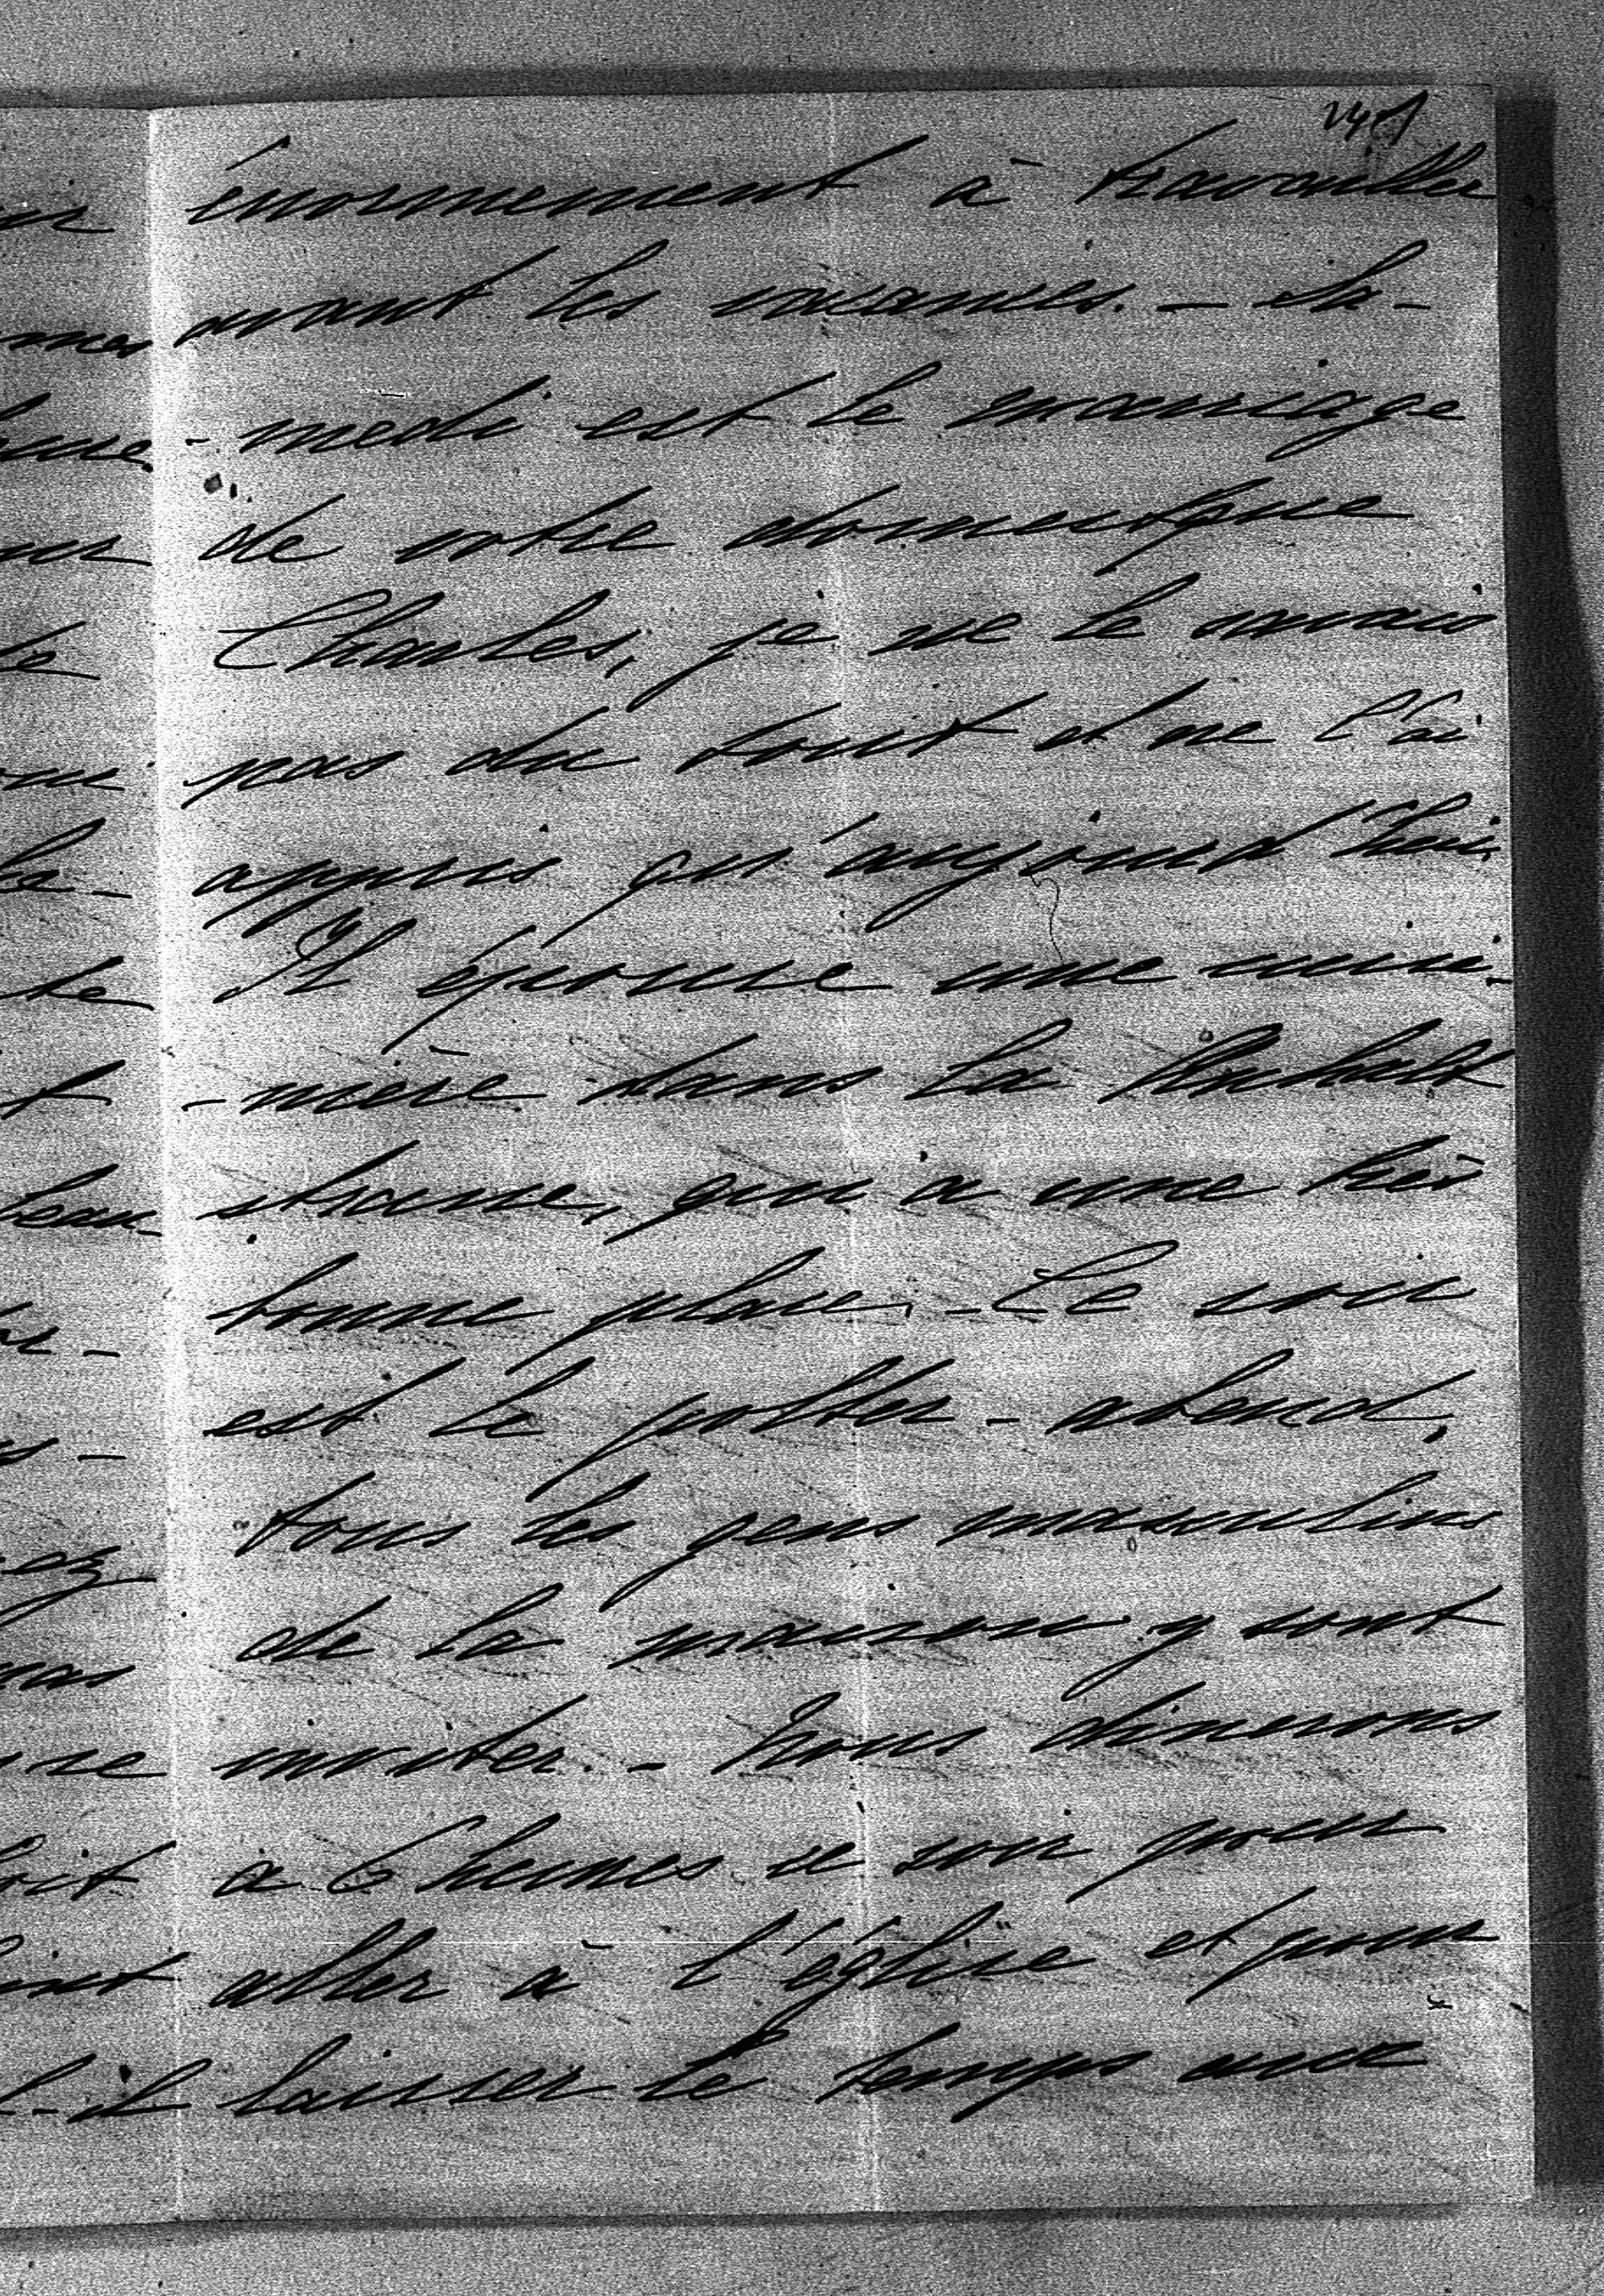 énormement à travailler
avant les vacances. — Sa-
-medi est le mariage
de votre domestique
Charles, je ne le savais
pas du tout et ne l'ai
appris qu'aujourd'hui.
Il épouse une cuisi-
-nière dans la Anhalt
strasse, qui a une très
bonne place. - Ce soir
est le polter-abend,
tous les gens masculins
de la maison y sont
invités. - Nous dinerons
à 6 heures ce soir pour
aller à l'église et pour
laisser le temps aux